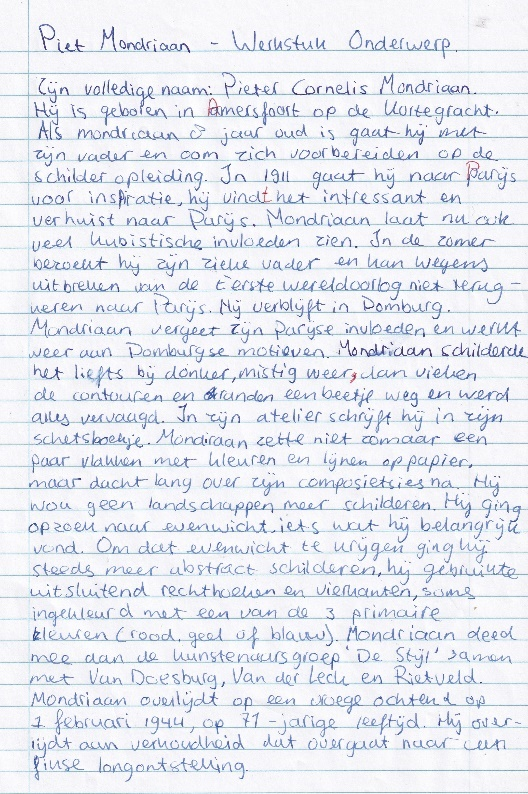 Piet Mondriaan - Werkstuk Onderwerp.
Zijn volledige naam: Pieter Cornelis Mondriaan.
Hij is geboren in Amersfoort op de Kortegracht.
Als mondriaan 8 jaar oud is gaat hij met
zijn vader en oom zich voorbereiden op de
schilder opleiding. In 1911 gaat hij naar Parijs
voor inspiratie, hij vindt het intressant en
verhuist naar Parijs. Mondriaan laat nu ook
veel kubistische invloeden zien. In de zomer
bezoekt hij zijn zieke vader en kan wegens
uitbreken van de Eerste wereldoorlog niet terug-
keren naar Parijs. Hij verblijft in Domburg.
Mondriaan vergeet zijn Paryse invloeden en werkt
weer aan Domburgse motieven. Mondriaan schilderde
het liefts bij donker, mistig weer, dan vielen
de contouren en randen een beetje weg en werd
alles vervaagd. In zijn atelier schrijft hij in zijn
schetsboekje. Mondriaan zette niet zomaar een
paar vlakken met kleuren en lijnen op papier,
maar dacht lang over zijn composietsies na. Hij
wou geen landschappen meer schilderen. Hij ging
opzoek naar evenwicht. iets wat hij belangrijk
vond. Om dat evenwicht te krijgen ging hij
steeds meer abstract schilderen, hij gebruikte
uitsluitend rechthoeken en vierkanten, soms
ingekleurd met een van de 3 primaire
kleuren (rood, geel of blauw). Mondriaan deed
mee aan de kunstenaarsgroep 'De Stijl' samen
met Van Doesburg, Van der Leck en Rietveld.
Mondriaan overlijdt op een vroege ochtend op
1 februari 1944, op 71-jarige leeftijd. Hij over-
lijdt aan verkoudheid dat overgaat naar een
finse longontsteling.